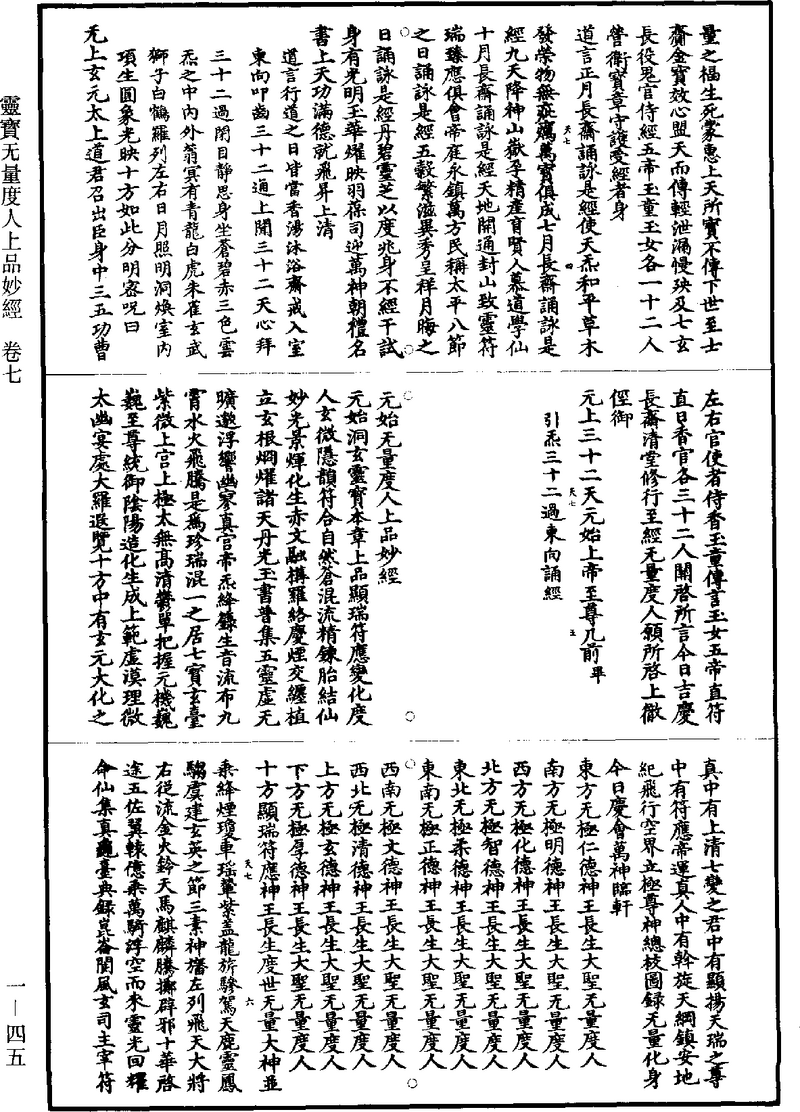 量之福生死蒙惠上天所寶不傳下世至士
齎金寶效心盟天而傳輕泄漏慢殃及七玄
長役鬼官侍經五帝玉童玉女各一十二人
營衛寶章守護受經者身
道言正月長齋誦詠是經使天炁和平草木
天七 四
發榮物無疵癘萬寶俱成七月長齋誦詠是
經九天降神山嶽孕精產育賢人慕道學仙
十月長齋誦詠是經天地開通封山致靈符
瑞臻應俱會帝庭永鎮萬方民稱太平八節
之日誦詠是經五穀繁滋異秀呈祥月晦之
日誦詠是經丹碧靈芝以度兆身不經干試
身有光明玉華耀映羽葆司迎萬神朝禮名
書上天功滿德就飛昇上清
道言行道之日皆當香湯沐浴齋戒入室
東向叩齒三十二通上聞三十二天心拜
三十二過閉目靜思身坐蒼碧赤三色雲
炁之中內外蓊冥有青龍白虎朱雀玄武
獅子白鶴羅列左右日月照明洞煥室內
項生圓象光映十方如此分明密呪曰
无上玄元太上道君召出臣身中三五功曹
左右官使者侍香玉童傳言玉女五帝直符
直日香官各三十二人關啓所言今日吉慶
長齋清堂修行至經无量度人願所啓上徹
俓御
元上三十二天元始上帝至尊几前畢
天七 五
引炁三十二過東向誦經
元始无量度人上品妙經
元始洞玄靈寶本章上品顯瑞符應變化度
人玄微隱韻符合自然蒼混流精鍊胎結仙
妙光景煇化生赤文融構羅絡慶煙交纏植
立玄根烱燿諸天丹光玉書普集五靈虛无
曠邈浮響幽寥真官帝炁絳籙生音流布九
霄水火飛騰是為珍瑞混一之居七寶玄臺
紫微上宮上極太無高清欝單把握元機巍
巍至尊統御陰陽造化生成上範虛漠理微
太幽宴處大羅遐覽十方中有玄元大化之
真中有上清七變之君中有顯揚天瑞之尊
中有符應帝運真人中有斡旋天綱鎮安地
紀飛行空界立極尊神總校圖錄无量化身
今日慶會萬神臨軒
東方无極仁德神王長生大聖无量度人
南方无極明德神王長生大聖无量度人
西方无極化德神王長生大聖无量度人
北方无極智德神王長生大聖无量度人
東北无極柔德神王長生大聖无量度人
東南无極正德神王長生大聖无量度人
西南无極文德神王長生大聖无量度人
西北无極清德神王長生大聖无量度人
上方无極玄德神王長生大聖无量度人
下方无極厚德神王長生大聖无量度人
十方顯瑞符應神王長生度世无量大神並
天七 六
乘絳煙瓊車瑤輦紫蓋龍旂驂駕天鹿靈鳳
騶虞建玄英之節三素神旛左列飛天大將
右從流金火鈴天馬麒麟騰擲辟邪十華啓
途五佐翼轅億乘萬騎浮空而來靈光回耀
命仙集真臺典錄崑崙閬風玄司主宰符
靈寶无量度人上品妙經 卷七
一—四五